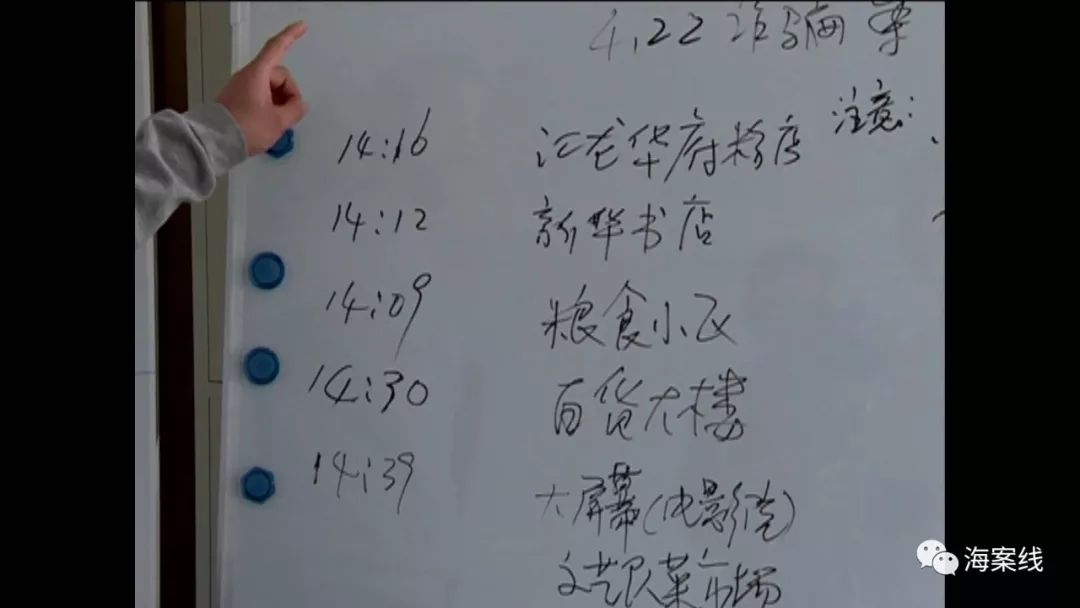 4.22诈骗案
注意:
14:16 江龙华府粉店
14:12 新华书店
14:09 粮食小区
14:30 百货大楼
14:39 大屏幕(电影院)
文艺路菜市场
海案线